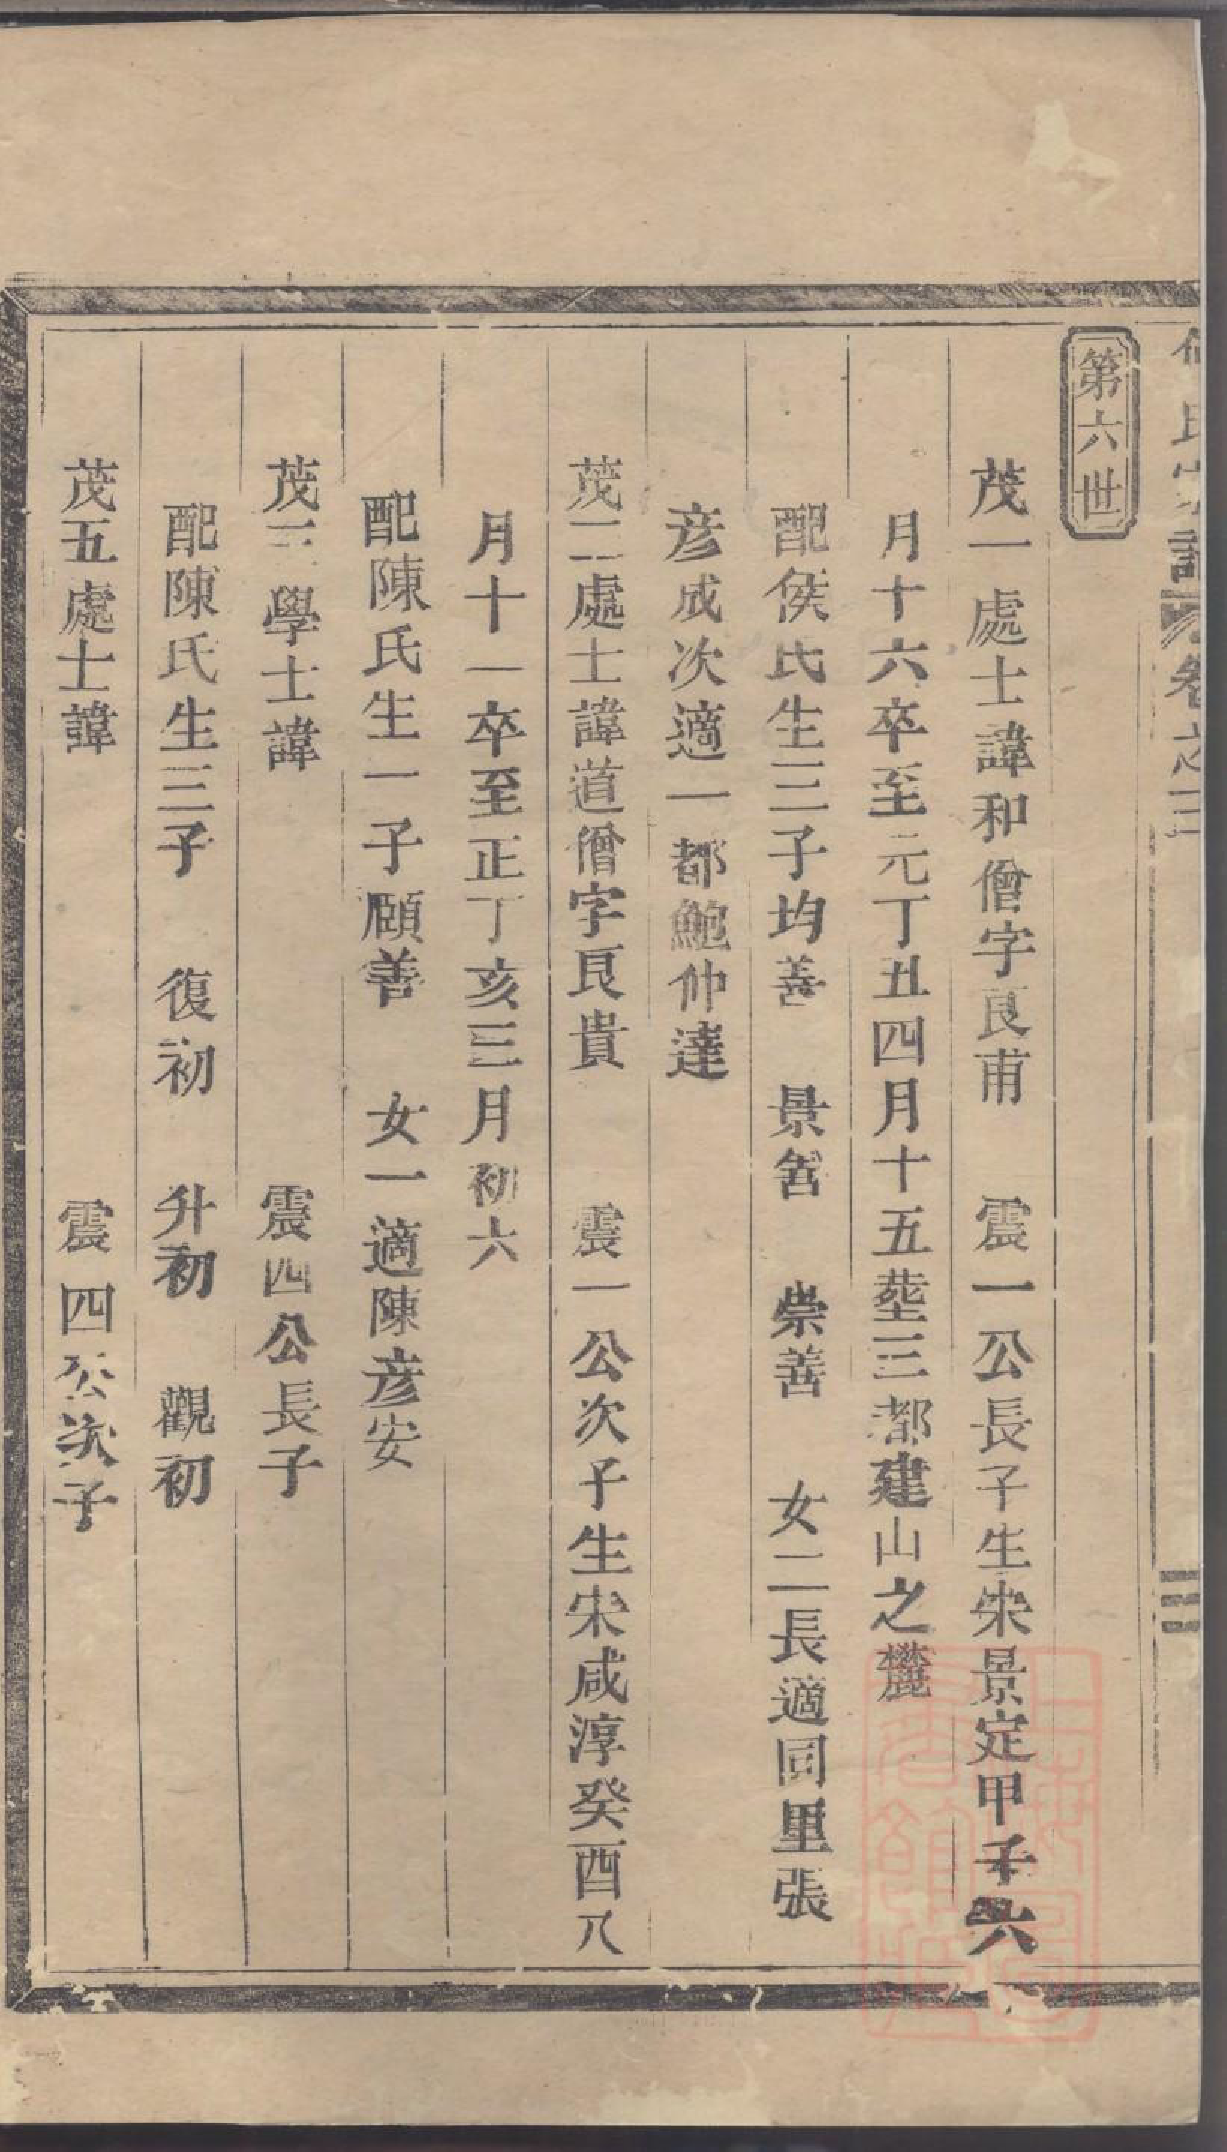 氏宗譜 卷之三
三
第六世
茂一處士諱和僧字良甫 震一公長子生宋景定甲子六
月十六卒至元丁丑四月十五塟三都建山之麓
配侯氏生三子均善 景善 崇善 女二長適同里張
彦成次適一都鮑仲達
茂二處士諱道僧字良貴 震一公次子生宋咸淳癸酉八
月十一卒至正丁亥三月初六
配陳氏生一子頤善 女一適陳彦安
茂三學士諱 震四公長子
配陳氏生三子 復初 升初 觀初
茂五處士諱 震四公次子